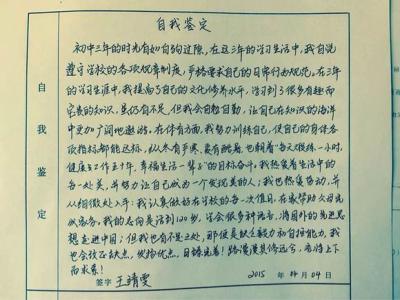 自我鉴定
自我鉴定
初中三年的时光有如白驹过隙，在这三年的学习生活中，我自觉
遵守学校的各项规章制度，严格要求自己的日常行为规范。在三年
的学习生涯中，我提高了自己的文化修养水平，学习到了很多有趣而
宝贵的知识，虽仍有不足，但我会自勉自勤，让自己在知识的海洋
中更加广阔地遨游。在体育方面，我努力训练自己，使自己的身体各
项指标都能达标，从冬有严寒、夏有酷暑，也朝着"每天锻炼一小时，
健康工作五十年，幸福生活一辈子"的目标奋斗。我热爱着生活中的
每一处美，并努力让自己成为一个发现美的人；我也热爱劳动，并
从细微处入手：我认真做好在学校的每一次值日，在家帮助父母完
成家务。我的志向是活到120岁，学会很多种语言，将国外的先进思
想走进中国；但我也有不足之处，那便是缺乏毅力和自控能力，我也
会改正缺点，发扬优点，日臻完善！路漫漫其修远兮，吾将上下
而求索！
签字 王靖雯
2015 年 04 月 04 日